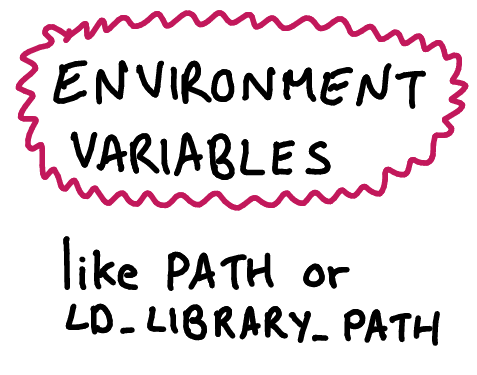 ENVIRONMENT
VARIABLES
like PATH or
LD_LIBRARY_PATH